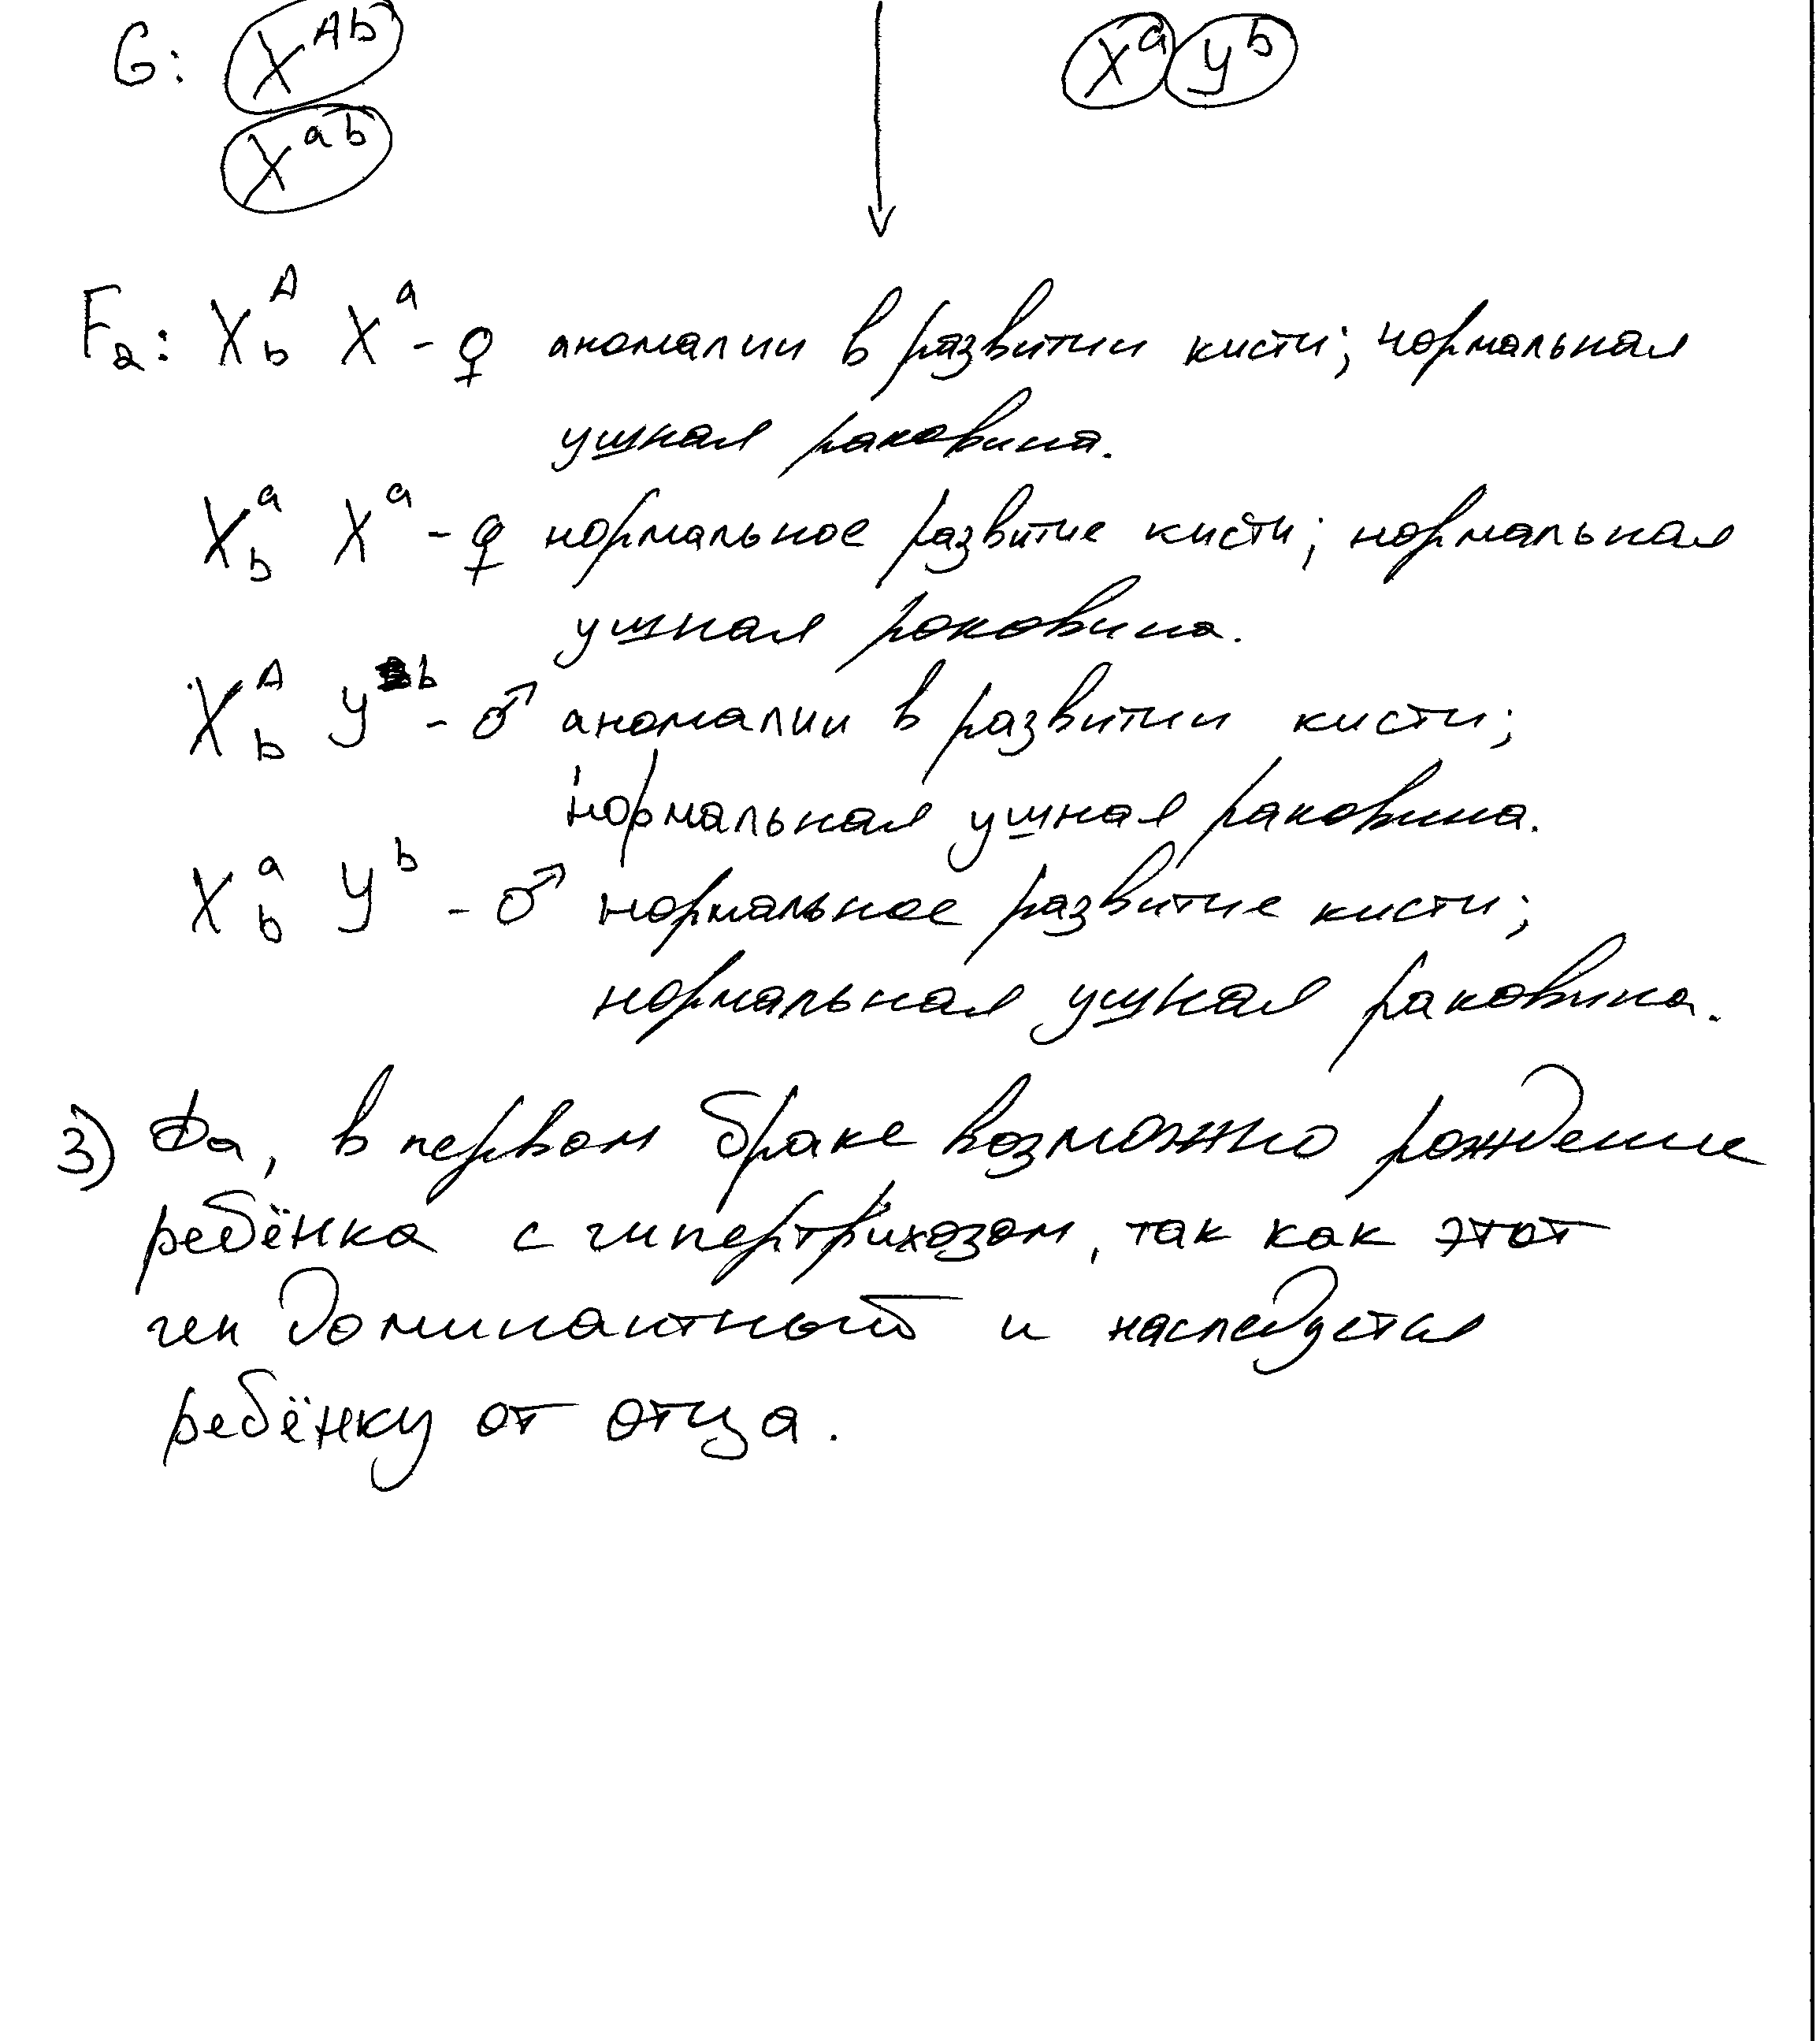 G: X^Ab X^a Y^b
X^ab
F₂: X^A_b X^a - ♀ аномалии в развитии кисти; нормальная
ушная раковина.
X^a_b X^a - ♀ нормальное развитие кисти; нормальная
ушная раковина.
X^A_b Y^b - ♂ аномалии в развитии кисти;
нормальная ушная раковина.
X^a_b Y^b - ♂ нормальное развитие кисти;
нормальная ушная раковина.
3) Да, в первом браке возможно рождение
ребёнка с гипертрихозом, так как этот
ген доминантный и наследуется
ребёнку от отца.